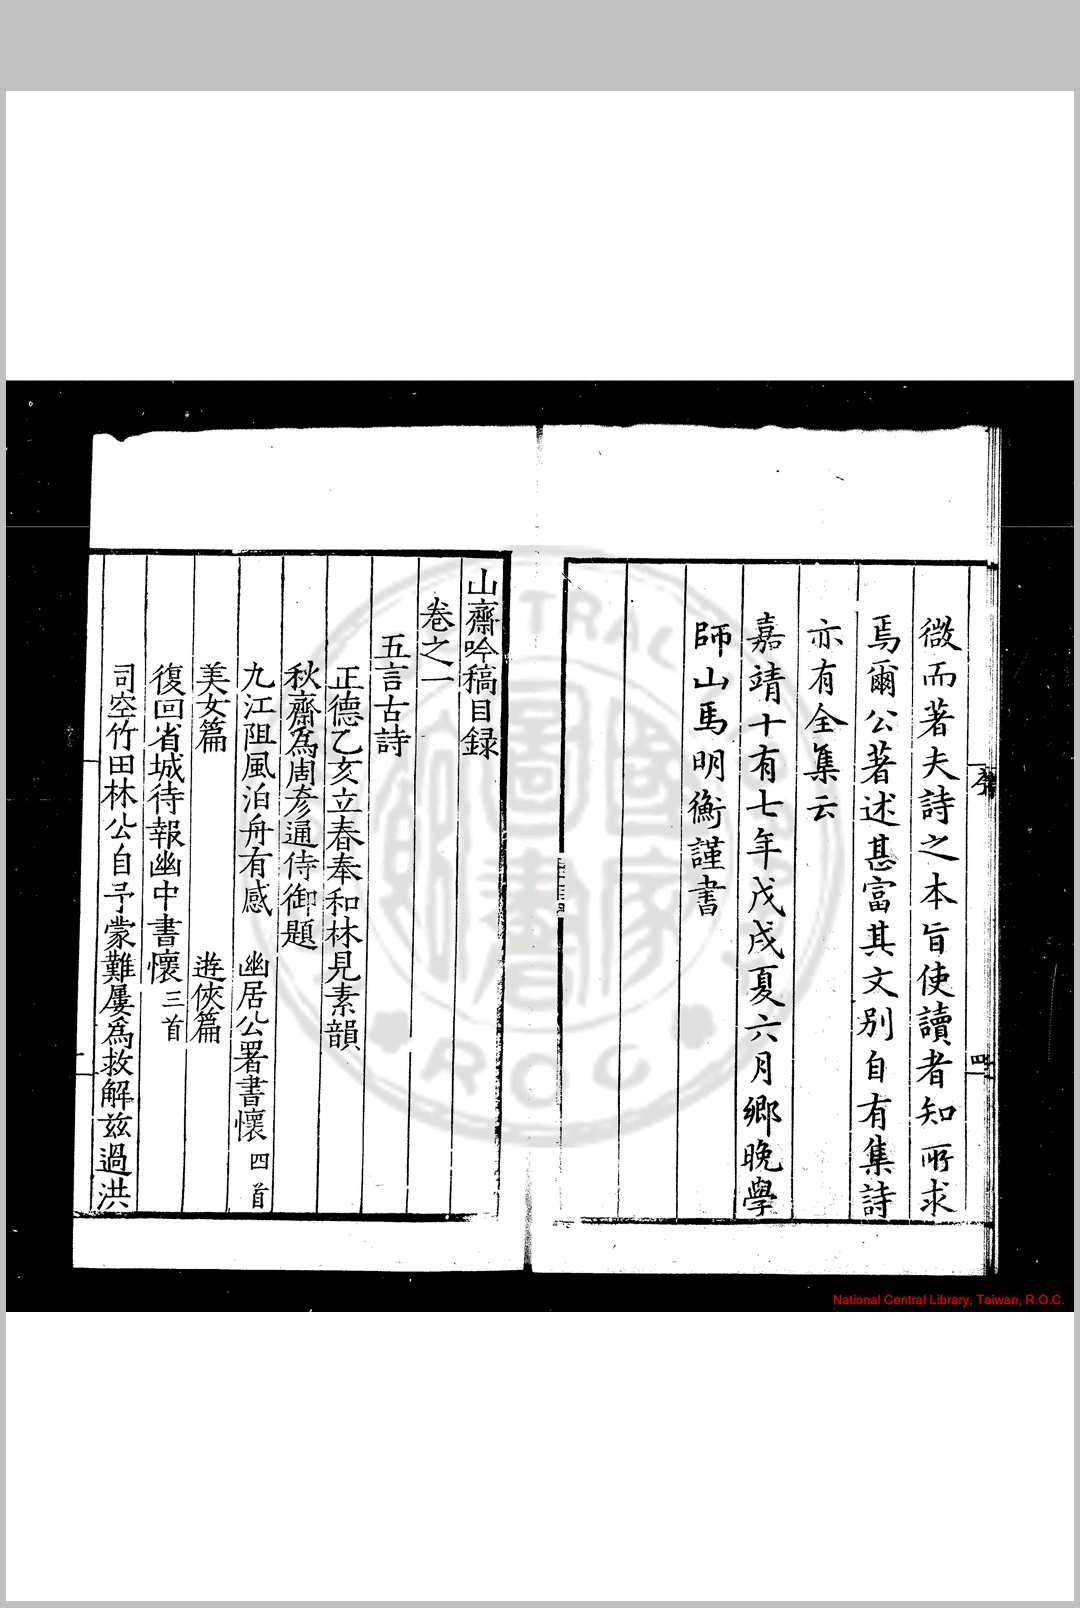 微而著夫詩之本旨使讀者知所求
焉爾公著述甚富其文別自有集詩
亦有全集云
嘉靖十有七年戊戌夏六月鄉晚學
師山馬明衡謹書
四
山齋吟稿目録
卷之一
五言古詩
正德乙亥立春奉和林見素韻
秋齋爲周彦通侍御題
九江阻風泊舟有感　幽居公署書懷四首
美女篇　遊俠篇
復回省城待報幽中書懷三首
司空竹田林公自予蒙難屢爲救解兹過洪
National Central Library, Taiwan, R.O.C.